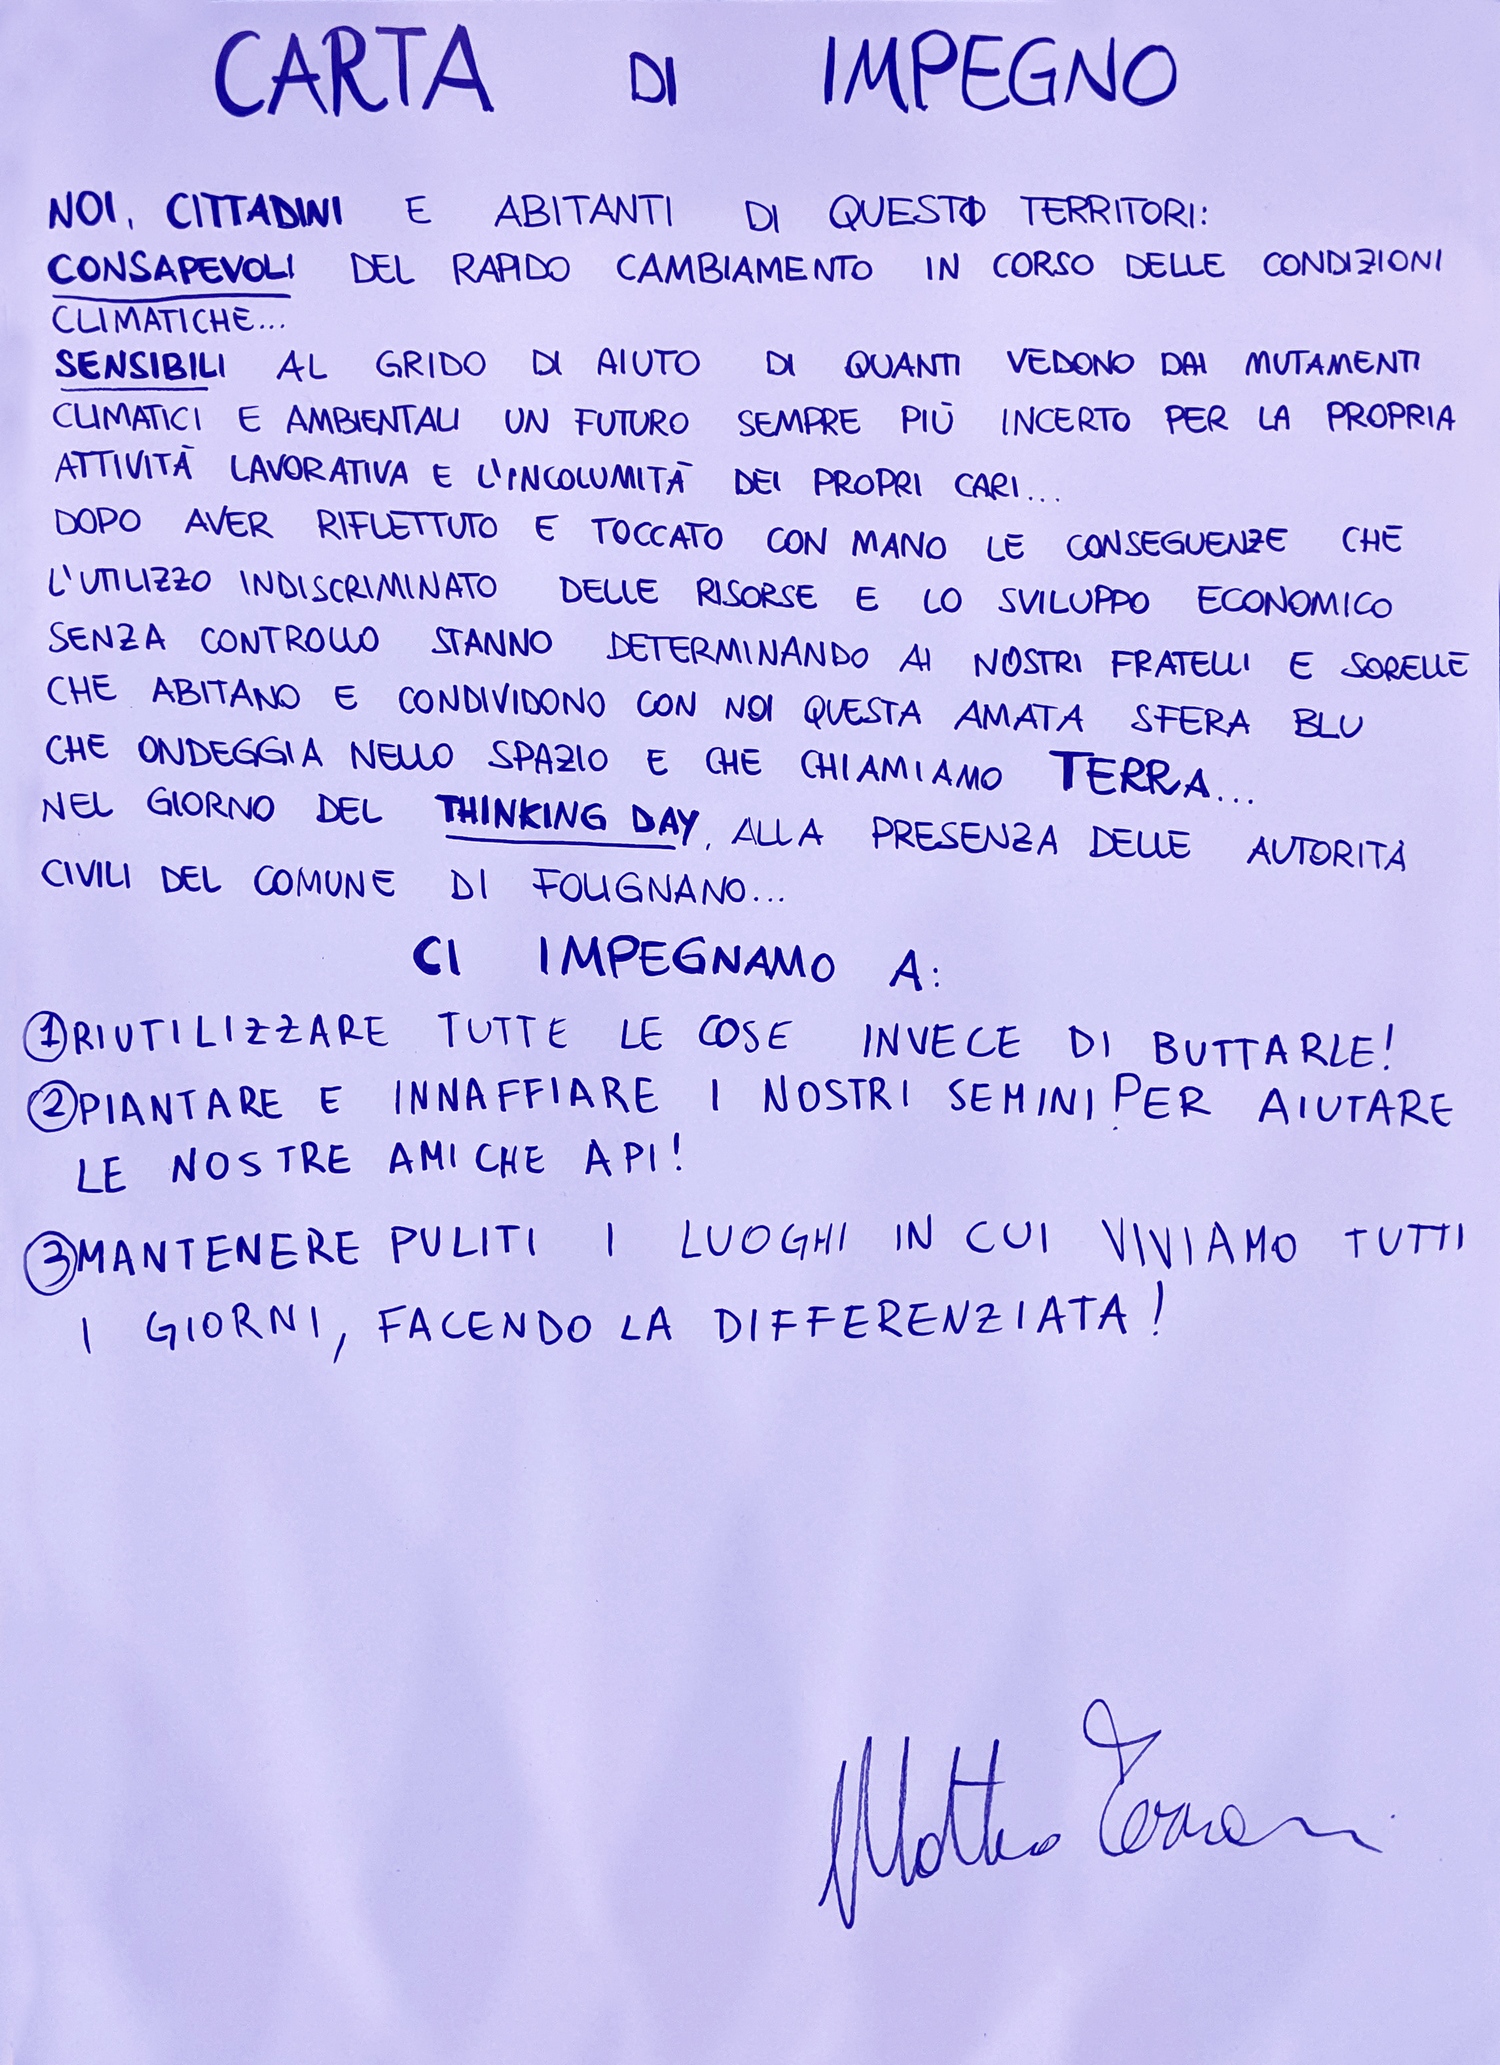 CARTA DI IMPEGNO
NOI, CITTADINI E ABITANTI DI QUESTI TERRITORI:
CONSAPEVOLI DEL RAPIDO CAMBIAMENTO IN CORSO DELLE CONDIZIONI
CLIMATICHE...
SENSIBILI AL GRIDO DI AIUTO DI QUANTI VEDONO DAI MUTAMENTI
CLIMATICI E AMBIENTALI UN FUTURO SEMPRE PIÙ INCERTO PER LA PROPRIA
ATTIVITÀ LAVORATIVA E L'INCOLUMITÀ DEI PROPRI CARI...
DOPO AVER RIFLETTUTO E TOCCATO CON MANO LE CONSEGUENZE CHE
L'UTILIZZO INDISCRIMINATO DELLE RISORSE E LO SVILUPPO ECONOMICO
SENZA CONTROLLO STANNO DETERMINANDO AI NOSTRI FRATELLI E SORELLE
CHE ABITANO E CONDIVIDONO CON NOI QUESTA AMATA SFERA BLU
CHE ONDEGGIA NELLO SPAZIO E CHE CHIAMIAMO TERRA...
NEL GIORNO DEL THINKING DAY, ALLA PRESENZA DELLE AUTORITÀ
CIVILI DEL COMUNE DI FOLIGNANO...
CI IMPEGNAMO A:
1 RIUTILIZZARE TUTTE LE COSE INVECE DI BUTTARLE!
2 PIANTARE E INNAFFIARE I NOSTRI SEMINI PER AIUTARE
LE NOSTRE AMICHE API!
3 MANTENERE PULITI I LUOGHI IN CUI VIVIAMO TUTTI
I GIORNI, FACENDO LA DIFFERENZIATA!
Matteo